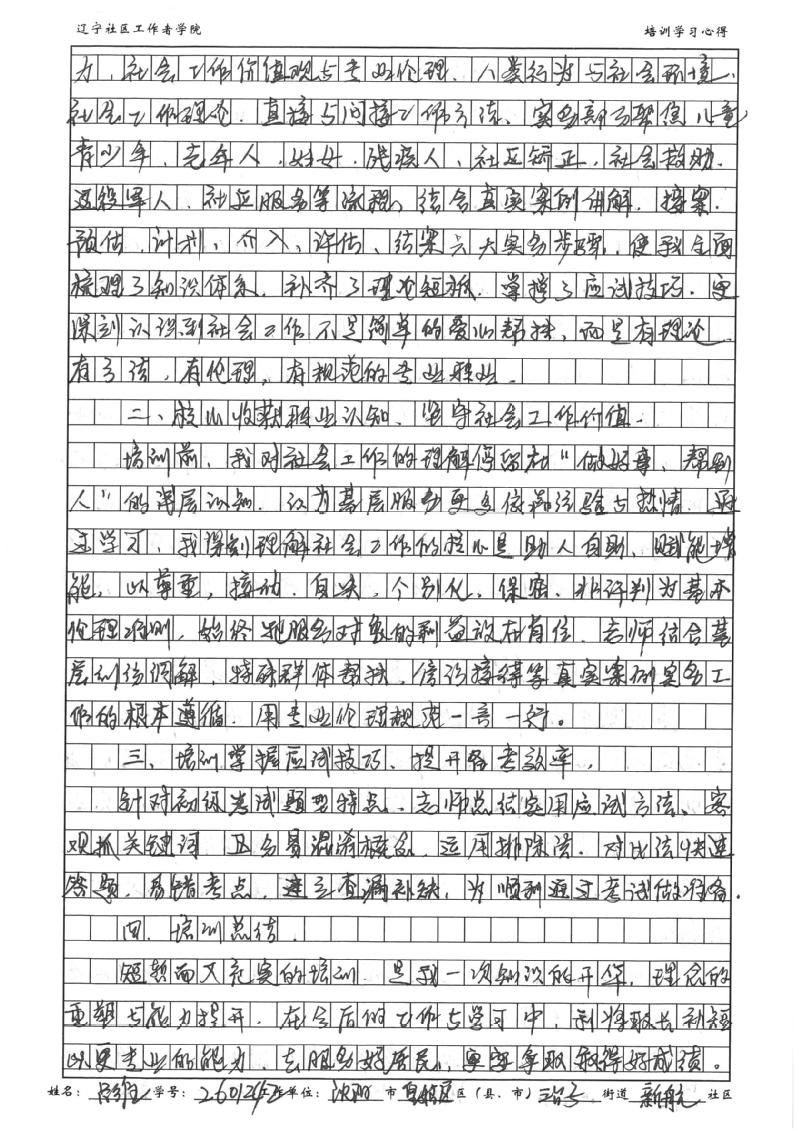 辽宁社区工作者学院 培训学习心得
力、社会工作价值观与专业伦理、人类行为与社会环境、
社会工作理论、直接与间接工作方法、实务部分聚焦儿童
青少年、老年人、妇女、残疾人、社区矫正、社会救助、
退役军人、社区服务等流程，结合真实案例讲解，接案、
预估、计划、介入、评估、结案六大实务步骤，使我全面
梳理了知识体系，补齐了理论短板，掌握了应试技巧，更
深刻认识到社会工作不是简单的爱心帮扶，而是有理论、
有方法、有伦理、有规范的专业职业。
二、核心收获职业认知、坚守社会工作价值。
培训前，我对社会工作的理解停留在“做好事、帮别
人”的浅层认知，认为基层服务更多依靠经验与热情，通
过学习，我深刻理解社会工作的核心是助人自助、赋能增
能，以尊重，接纳、自决、个别化、保密、非评判为基本
伦理准则，始终把服务对象的利益放在首位。老师结合基
层纠纷调解、特殊群体帮扶、信访接待等真实案例实务工
作的根本遵循，用专业伦理规范一言一行。
三、培训掌握应试技巧、提升备考效率。
针对初级考试题型特点，老师总结实用应试方法、客
观抓关键词 区分易混淆概念、运用排除法、对比法快速
答题，易错考点，建立查漏补缺，为顺利通过考试做准备。
四、培训总结
短暂而又充实的培训，是我一次知识的升华，理念的
重塑与能力提升，在今后的工作与学习中，我将取长补短
以更专业的能力，去服务好居民，更要争取取得好成绩。
姓名： 学号： 工作单位：沈阳 市 皇姑区 区（县、市） 三台子 街道 新航 社区